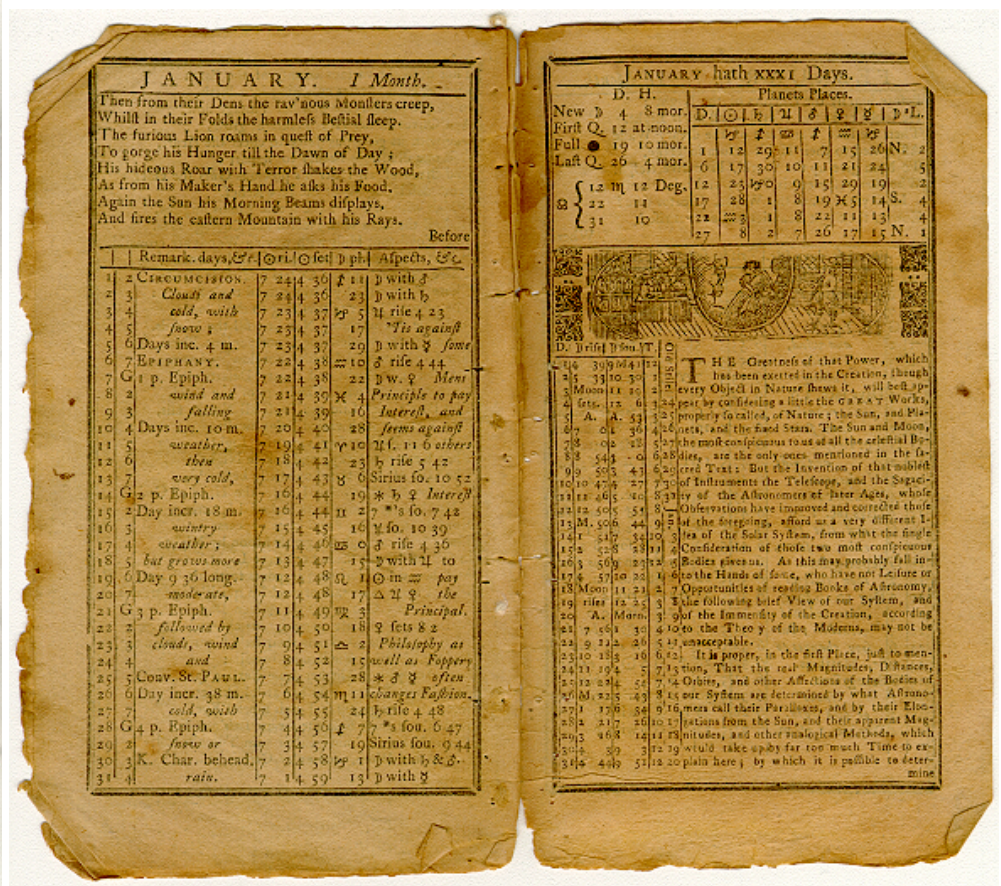 JANUARY. I Month.
Then from their Dens the rav'nous Monsters creep,
Whilst in their Folds the harmless Bestial sleep.
The furious Lion roams in quest of Prey,
To gorge his Hunger till the Dawn of Day ;
His hideous Roar with Terror shakes the Wood,
As from his Maker's Hand he asks his Food.
Again the Sun his Morning Beams displays,
And fires the eastern Mountain with his Rays.
Before
Remark. days, &c. ☉ ri. ☉ set ☽ pl. Aspects, &c
1 2 CIRCUMCISION. 7 24 4 36 ♐ 11 ☽ with ♂
2 3 Clouds and 7 24 4 36 23 ☽ with ♄
3 4 cold, with 7 23 4 37 ♑ 5 ♃ rise 4 23
4 5 snow ; 7 23 4 37 17 'Tis against
5 6 Days inc. 4 m. 7 23 4 37 29 ☽ with ☿ some
6 7 EPIPHANY. 7 22 4 38 ♒ 10 ♂ rise 4 44
7 G 1 p. Epiph. 7 22 4 38 22 ☽ w. ♀ Mens
8 2 wind and 7 21 4 39 ♓ 4 Principle to pay
9 3 falling 7 21 4 39 16 Interest, and
10 4 Days inc. 10 m. 7 20 4 40 28 seems against
11 5 weather, 7 19 4 41 ♈ 10 ♃ s. 11 6 others
12 6 then 7 18 4 42 23 ♄ rise 5 42
13 7 very cold, 7 17 4 43 ♉ 6 Sirius so. 10 52
14 G 2 p. Epiph. 7 16 4 44 19 ✶ ♄ ♀ Interest
15 2 Day incr. 18 m. 7 16 4 44 ♊ 2 7 *'s so. 7 42
16 3 wintry 7 15 4 45 16 ♃ so. 10 39
17 4 weather ; 7 14 4 46 ♋ 0 ♂ rise 4 36
18 5 but grows more 7 13 4 47 15 ☽ with ♃ to
19 6 Day 9 36 long. 7 12 4 48 ♌ 1 ☉ in ♒ pay
20 7 moderate, 7 12 4 48 17 △ ♃ ♀ the
21 G 3 p. Epiph. 7 11 4 49 ♍ 3 Principal.
22 2 followed by 7 10 4 50 18 ♀ sets 8 2
23 3 clouds, wind 7 9 4 51 ♎ 2 Philosophy as
24 4 and 7 8 4 52 15 well as Foppery
25 5 Conv. St. PAUL. 7 7 4 53 28 ✶ ♂ ☿ often
26 6 Day incr. 38 m. 7 6 4 54 ♏ 11 changes Fashion.
27 7 cold, with 7 5 4 55 24 ♄ rise 4 48
28 G 4 p. Epiph. 7 4 4 56 ♐ 7 7 *'s sou. 6 47
29 2 snow or 7 3 4 57 19 Sirius sou. 9 44
30 3 K. Char. behead. 7 2 4 58 ♑ 1 ☽ with ♄ & ♂.
31 4 rain. 7 1 4 59 13 ☽ with ☿
JANUARY hath XXXI Days.
D. H.
New ☽ 4 8 mor.
First Q. 12 at noon.
Full ● 19 10 mor.
Last Q. 26 4 mor.
☊ 12 ♏ 12 Deg.
22 11
31 10
Planets Places.
D. ☉ ♄ ♃ ♂ ♀ ☿ ☽'s L.
1 12 29 11 7 15 26 N. 2
6 17 30 10 11 21 24 5
12 23 ♑0 9 15 29 19 2
17 28 1 8 19 ♓5 14 S. 4
22 ♒3 1 8 22 11 13 4
27 8 2 7 26 17 15 N. 1
D. ☽ rise ☽ sou. T.
Old Stile
THE Greatness of that Power, which
has been exerted in the Creation, though
every Object in Nature shews it, will best ap-
pear by considering a little the GREAT Works,
properly so called, of Nature ; the Sun, and Pla-
nets, and the fixed Stars. The Sun and Moon,
the most conspicuous to us of all the celestial Bo-
dies, are the only ones mentioned in the sa-
cred Text : But the Invention of that noblest
of Instruments the Telescope, and the Sagaci-
ty of the Astronomers of later Ages, whose
Observations have improved and corrected those
of the foregoing, afford us a very different I-
dea of the Solar System, from what the single
Consideration of those two most conspicuous
Bodies gives us. As this may probably fall in-
to the Hands of some, who have not Leisure or
Opportunities of reading Books of Astronomy,
the following brief View of our System, and
of the Immensity of the Creation, according
to the Theory of the Moderns, may not be
unacceptable.
It is proper, in the first Place, just to men-
tion, That the real Magnitudes, Distances,
Orbits, and other Affections of the Bodies of
our System are determined by what Astrono-
mers call their Parallaxes, and by their Elon-
gations from the Sun, and their apparent Mag-
nitudes, and other analogical Methods, which
would take up by far too much Time to ex-
plain here ; by which it is possible to deter-
mine